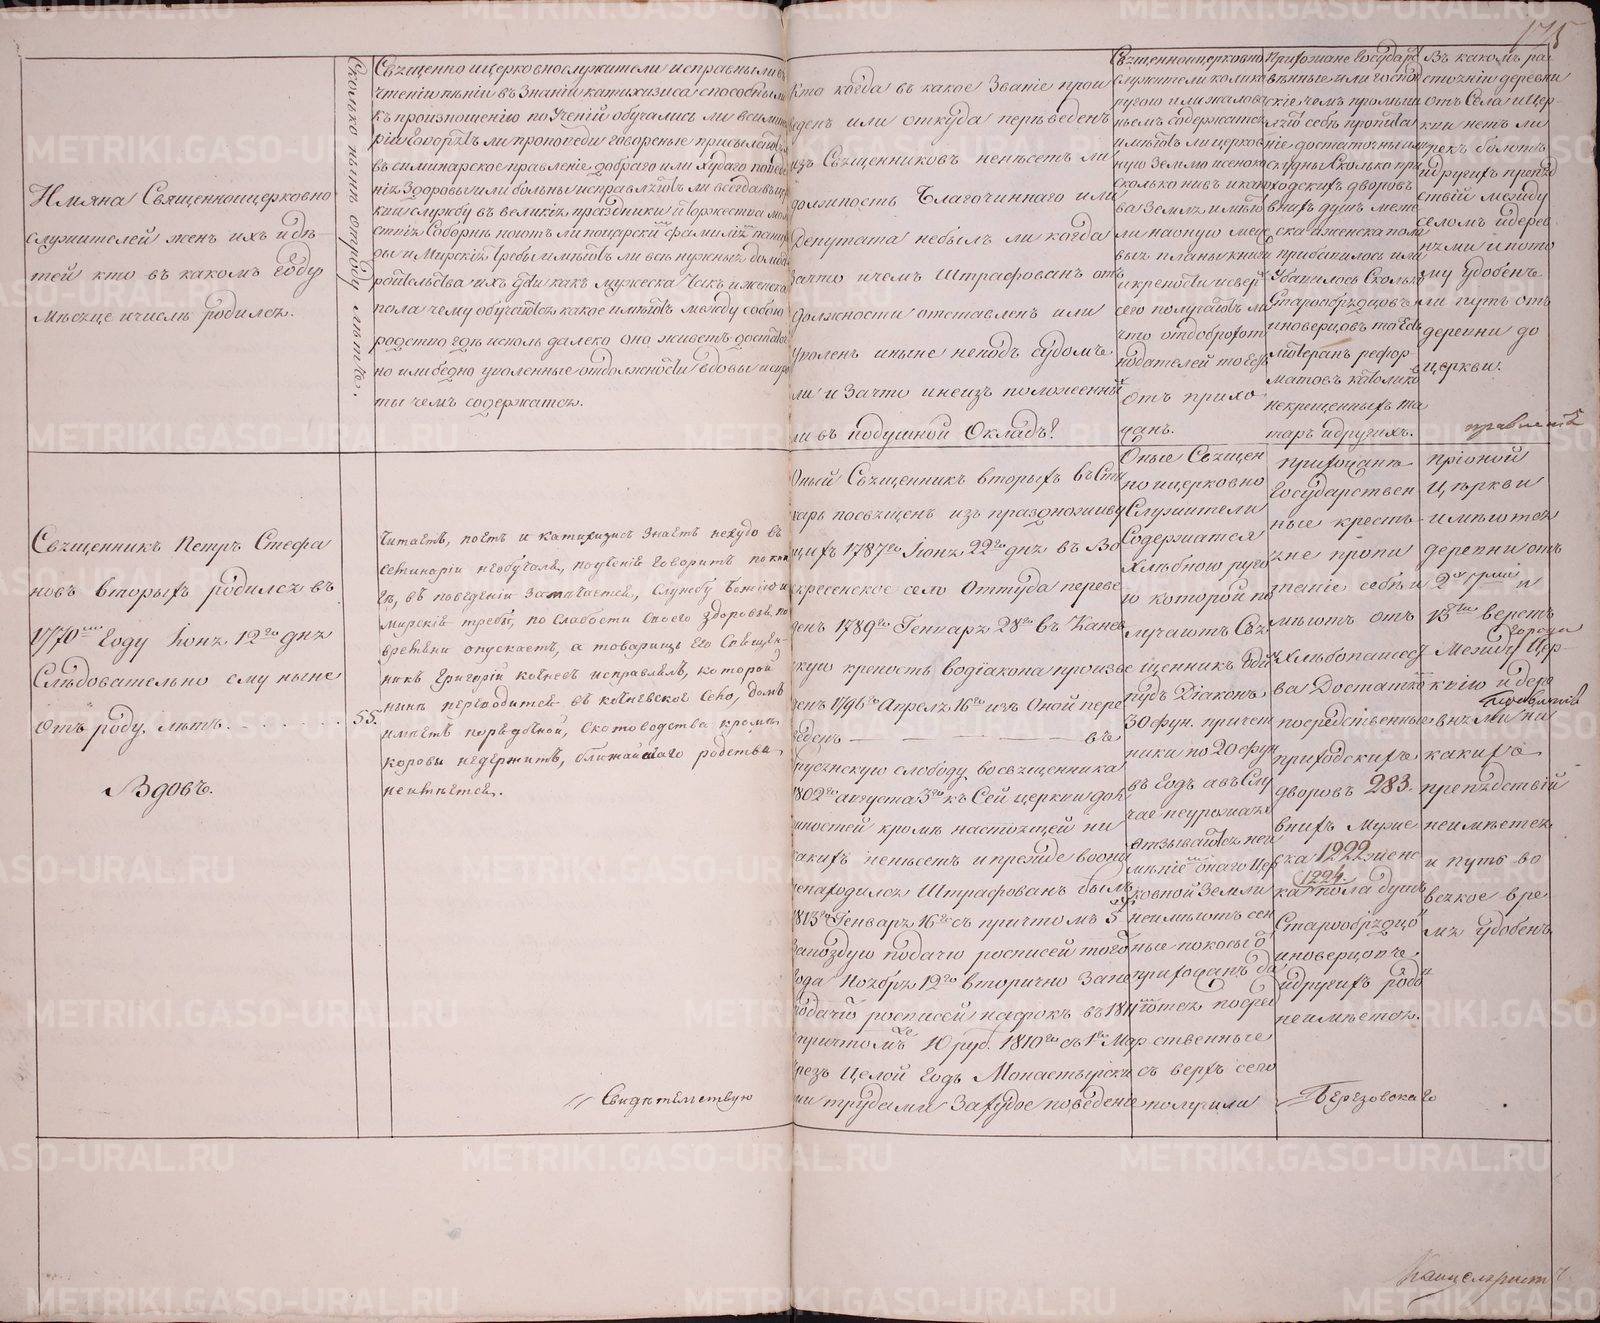 175
Имяна Священноицерковно
служителей женъ ихъ идѣ
тей кто въ какомъ году
мѣсяце ичислѣ родился.
Сколько кому отроду лѣтъ.
Священно ицерковнослужители исправныли въ
чтеніи пѣніи въ знаніи катихизиса способныли
къ произношенію поученій обучались ли всеми
въ семинарское правленіе добраго или худаго поведе
нія здоровы или больны исправляютъ ли всегда въ цер
кви службу въ великія праздники иторжества мо
ды и мирскія требы имѣютъ ли всѣ нужныя домаш
пола чему обучаются какое имѣютъ между собою
родство гдѣ исколь далеко оно живетъ достаточ
но или бедно уволенные отдолжности вдовы и сиро
ты чемъ содержатся.
Кто когда въ какое Званіе прои
зведенъ или откуда переведенъ
изъ Священниковъ ненесетъ ли
должность Благочиннаго или
Депутата небылъ ли когда
зачто ичемъ Штрафованъ отъ
должности отставленъ или
уволенъ иныне неподъ судомъ
ли и зачто инеизъ положенныхъ
ли въ подушной Окладъ?
Священноицерковно
служители колико
ругою или жалова
ньемъ содержатся
имѣютъ ли церков
ную Землю исенокос
сколько нивъ икако
ва Земля иимѣю
ли наоную меже
выя планы книги
икрепости исверхъ
сего получаютъ ли
что отдоброхот
нодателей то есть
отъ прихо
жанъ.
Прихожане Государс
твенные или господ
скіе чемъ промыш
ляютъ себѣ пропита
ніе достаточны или
скудны сколько при
ходскихъ дворовъ
внихъ душъ муже
ска иженска пола
прибавилось или
убавилось Сколько
Старообрядцовъ
иноверцовъ тоесть
лютеранъ рефор
матовъ католико
некрещенныхъ та
таръ идругихъ.
Въ какомъ ра
стояніи деревни
отъ Села ицер
кви нетъ ли
рекъ болотъ
идругихъ препят
ствій между
селомъ идерев
нями и пото
му удобенъ
ли путь отъ
деревни до
церкви.
Священникъ Петръ Стефа
новъ Вторыхъ родился въ
1770мъ Году Іюня 12го дня
Слѣдовательно ему ныне
отъ роду лѣтъ. 55.
Вдовъ.
Читаетъ, поетъ и катихизисъ знаетъ нехудо въ
семинаріи необучался, поученіе говоритъ по кни
ге, въ поведеніи замѣчается, службу Божію и
мирскіе требы, по слабости своего здоровья, по
времени опускаетъ, а товарищъ его Священ
никъ Григорій Кочневъ исправляетъ, которой
нынѣ переводится въ Кочневское село, домъ
имѣетъ порядочной, скотоводства кромѣ
коровы недержитъ, ближайшаго родства
неимѣется.
Свидѣтельствую
Оный Священникъ вторыхъ въ Сти
харь посвященъ изъ праздноживу
щихъ 1787го Іюня 22го дня въ Во
скресенское село Оттуда переве
денъ 1789го Генваря 28го въ Канев
скую крепость водіакона произве
денъ 1796го Апреля 16го изъ Оной пере
веденъ въ
слободу восвященника
1802го августа 3го къ Сей церкви дол
жностей кромѣ настоящей ни
какихъ ненесетъ и прежде воони
ненаходился Штрафованъ былъ
1813го Генваря 16го съ причтомъ 5
запоздую подачу росписей того
года Ноября 12го вторично зане
подачю росписей насрокъ въ 1811
причтомъ 10 руб. 1810го съ 1го Мар
чрезъ целой Годъ Монастырски
ми трудами Захудое поведеніе
Оные Священ
но ицерковно
Служители
Содержатся
Хлѣбною руго
ю которой по
лучаютъ Свя
щенникъ 1дин
пудъ Діаконъ
30 фун. причет
ники по 20 фун
въ Годъ авъ Слу
чае неурожая
отзываются неи
мѣніемъ онаго Цер
ковной Земли
неимѣютъ сен
ные покосы о
прихожанъ да
ются посред
ственные
съ верхъ сего
получили
Прихожане
Государствен
ные кресть
яне пропи
таніе себѣ и
мѣютъ отъ
Хлѣбопашест
ва Достатка
посредственные
приходскихъ
дворовъ 283.
внихъ Муже
ска 1222 женс
ка 1224. пола душъ
Старообрядцо
иноверцовъ
идругихъ родо
неимѣется.
Березовскаго
Пріоной
Церкви
имѣются
деревни отъ
2хъ и
13ти верстъ
Между Цер
квію идере
внями ни
какихъ
препятствій
неимѣется
и путь во
всякое вре
мя удобенъ
правленія
Канцеляристъ